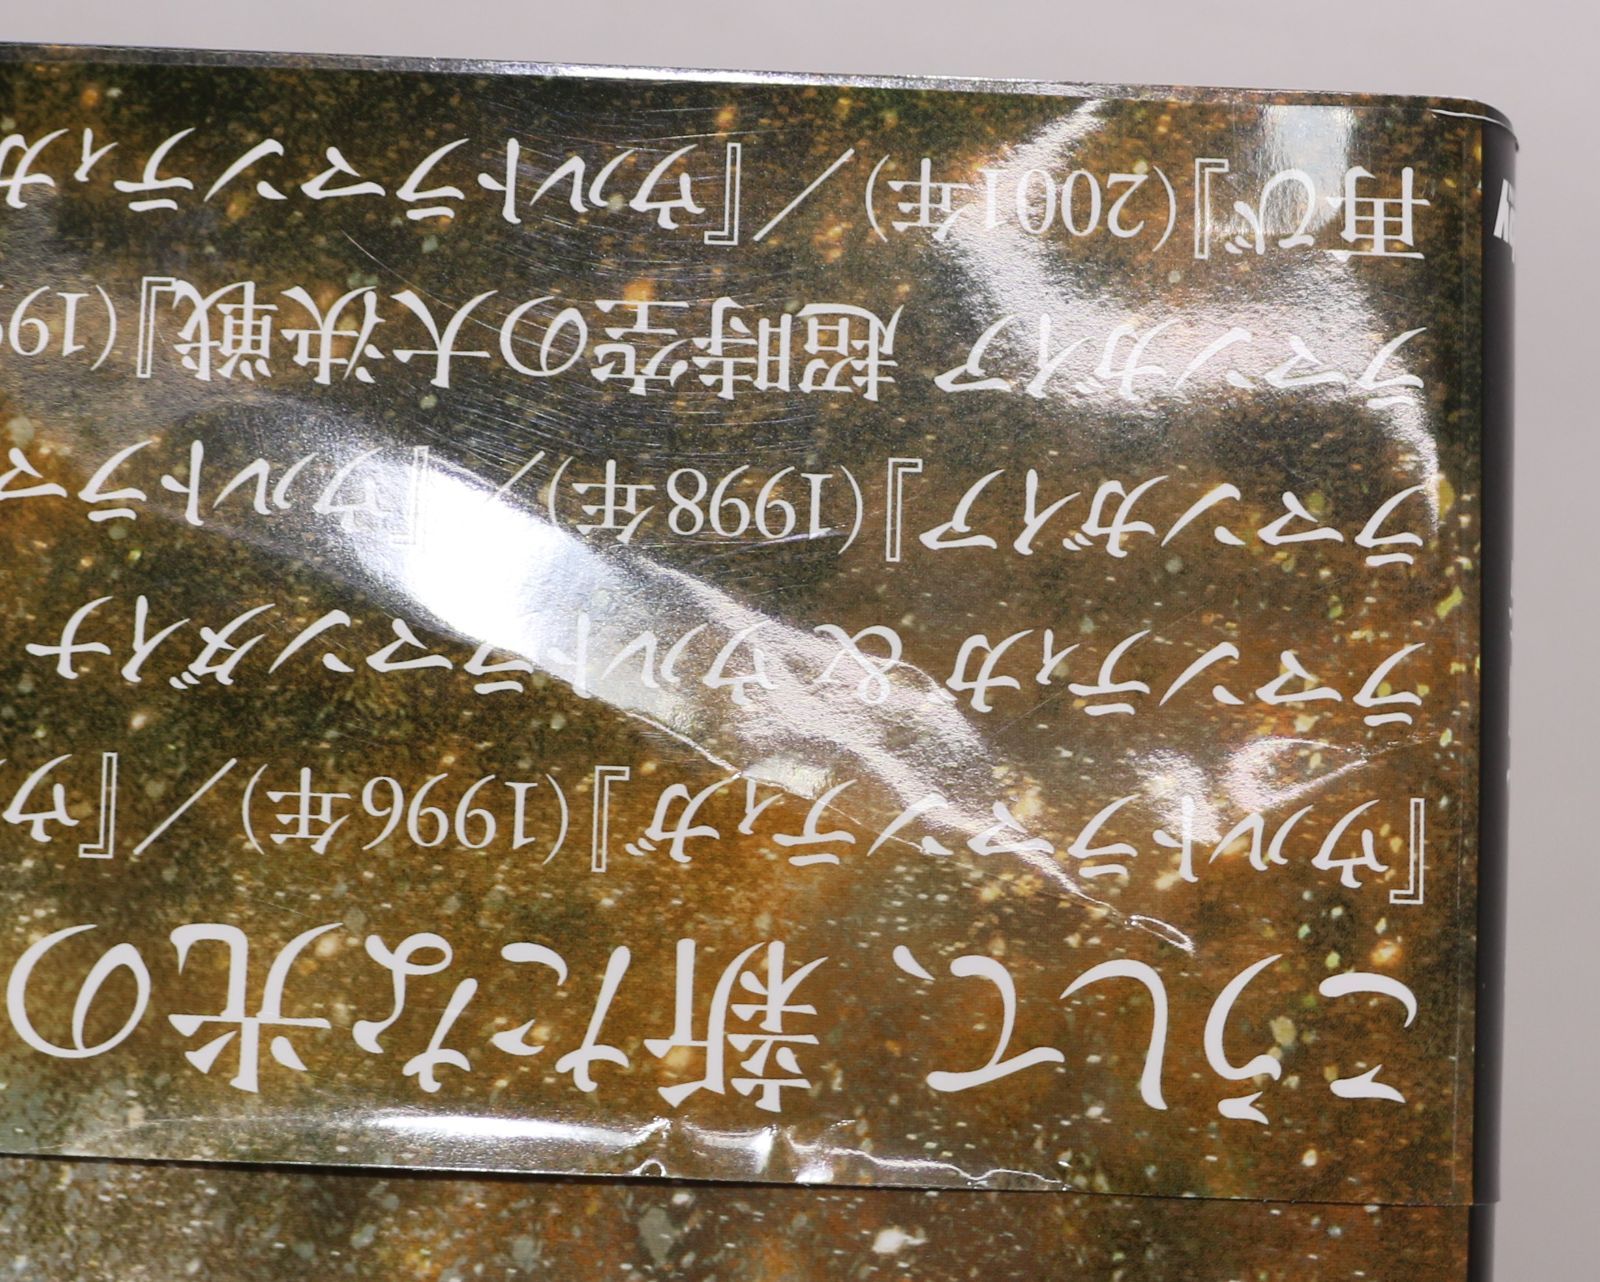 こうして、新たな光の
『ウルトラマンティガ』(1996年)／『ウ
ラマンティガ & ウルトラマンダイナ
ラマンガイア』(1998年)／『ウルトラマ
ラマンガイア 超時空の大決戦』(19
再び』(2001年)／『ウルトラマンティガ